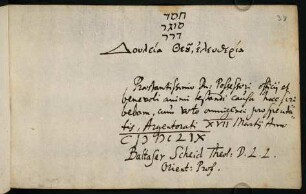 38
חסד
סוגר
דרך
Δουλεία Θεοῦ, ἐλευθερία
Praestantissimo Dn. Possessori officij et
benevoli animi testandi causa haec scri
bebam, cum voto omnigenae prosperita
tis, Argentorati XVII Martij Anni
CIↃ IↃC LIX
Baltasar Scheid Theol: D. L. L.
Orient: Prof.